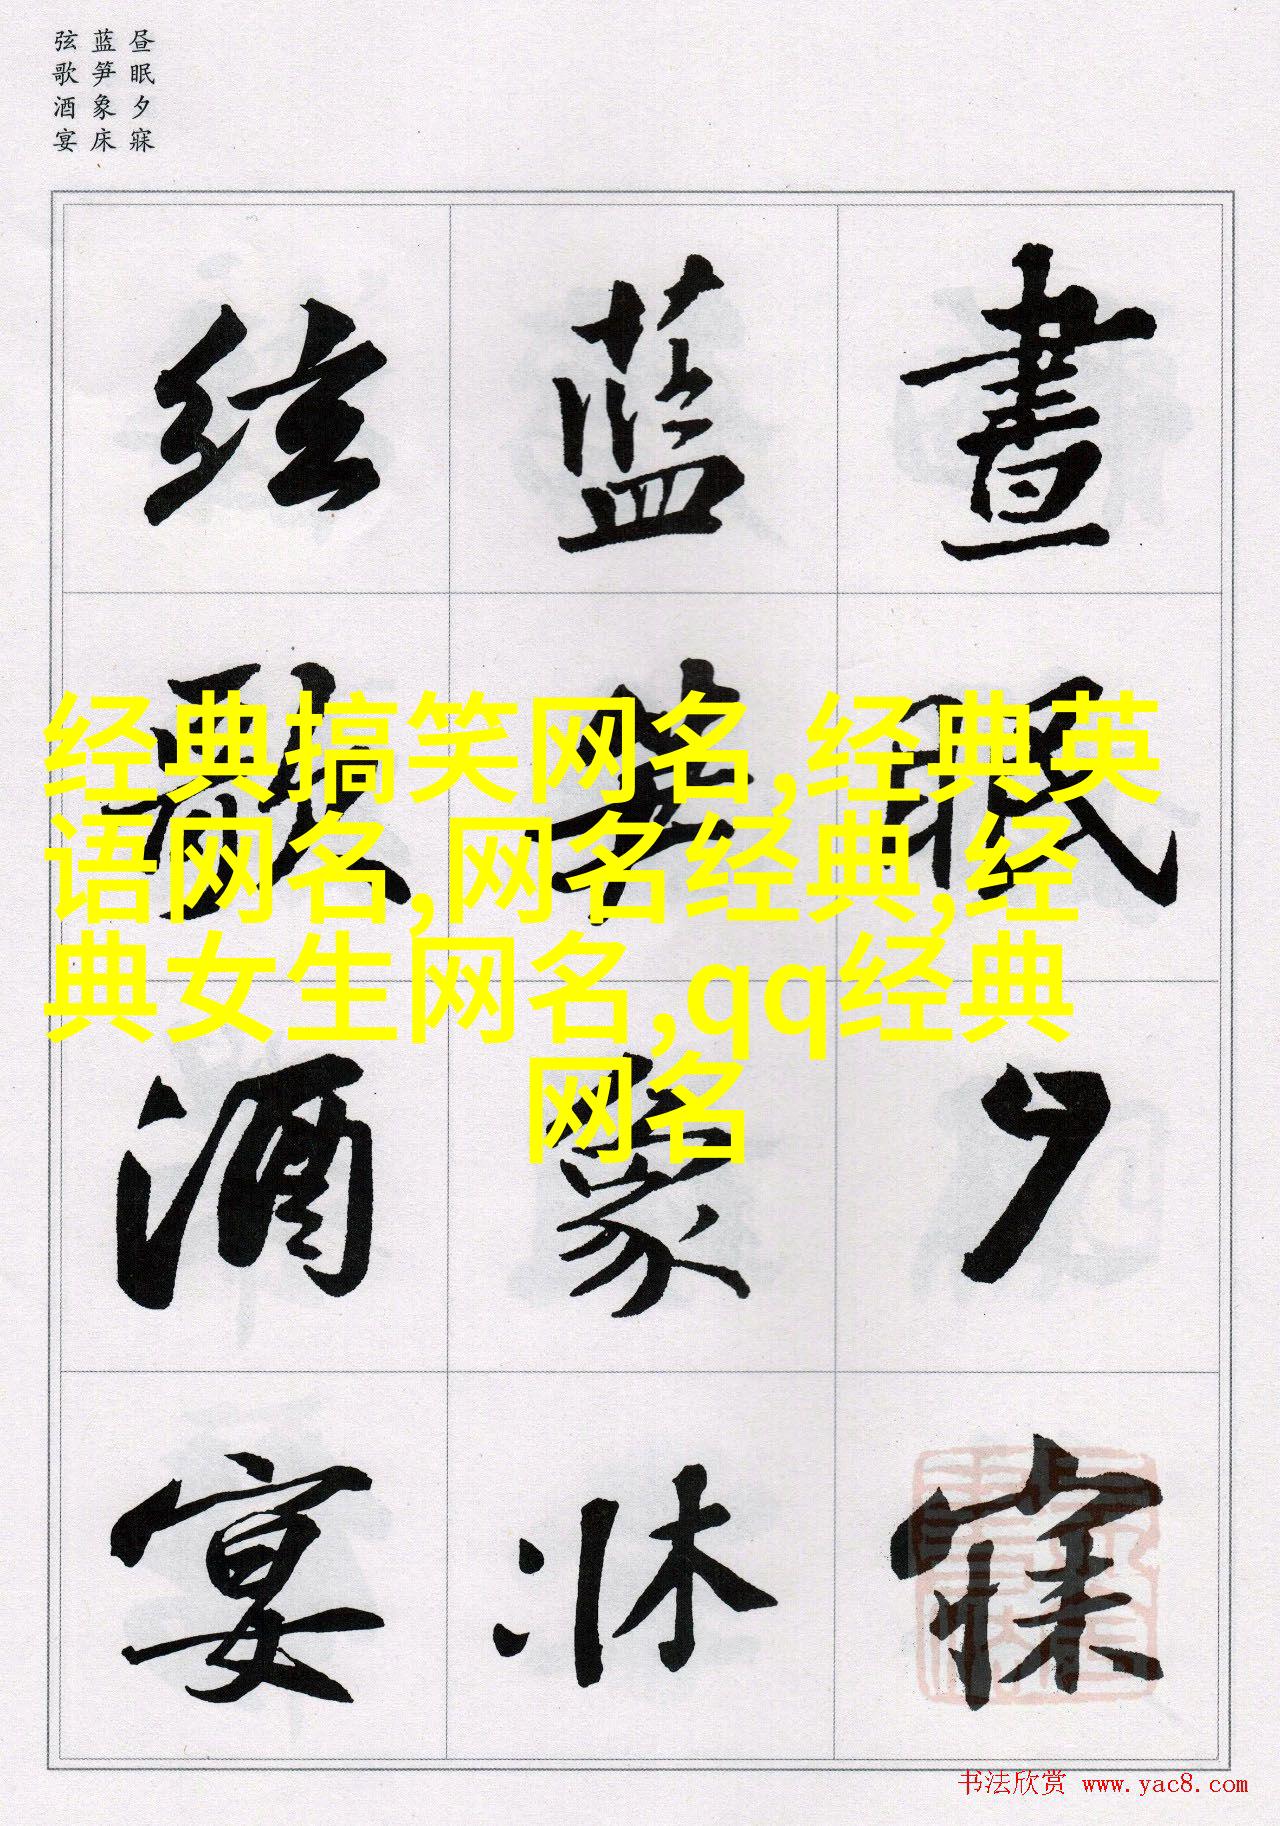 昼眠夕寐
蓝笋象床
弦歌酒宴
晝眠夕寐
藍笋象牀
絃歌酒宴
经典搞笑网名,经典英
语网名,网名经典,经
典女生网名,qq经典
网名
书法欣赏 www.yac8.com